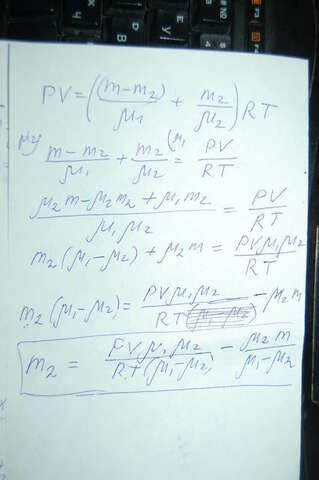 PV = ((m-m₂)/μ₁ + m₂/μ₂) RT
(m-m₂)/μ₁ + m₂/μ₂ = PV/RT
(μ₂m-μ₂m₂+μ₁m₂)/(μ₁μ₂) = PV/RT
m₂(μ₁-μ₂)+μ₂m = PVμ₁μ₂/RT
m₂(μ₁-μ₂) = PVμ₁μ₂/RT - μ₂m
m₂ = PVμ₁μ₂/(RT(μ₁-μ₂)) - μ₂m/(μ₁-μ₂)